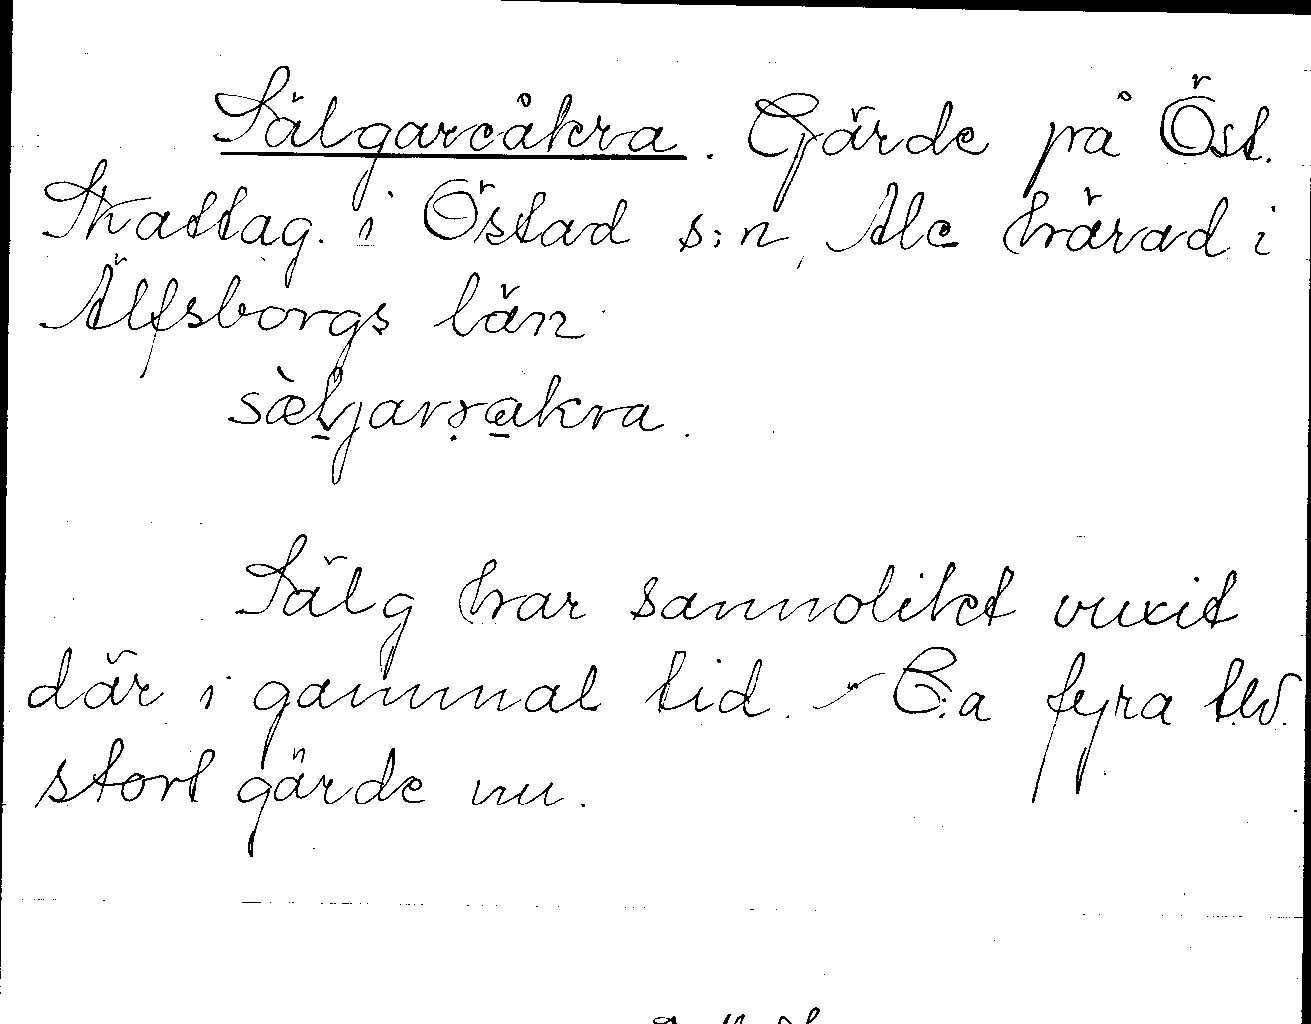 Sälgareåkra. Gärde på Öst.
Skattag. i Östad s:n, Ale härad i
Älfsborgs län
sæ̀ljarəakra.
Sälg har sannolikt vuxit
där i gammal tid. - C:a fyra tld.
stort gärde nu.